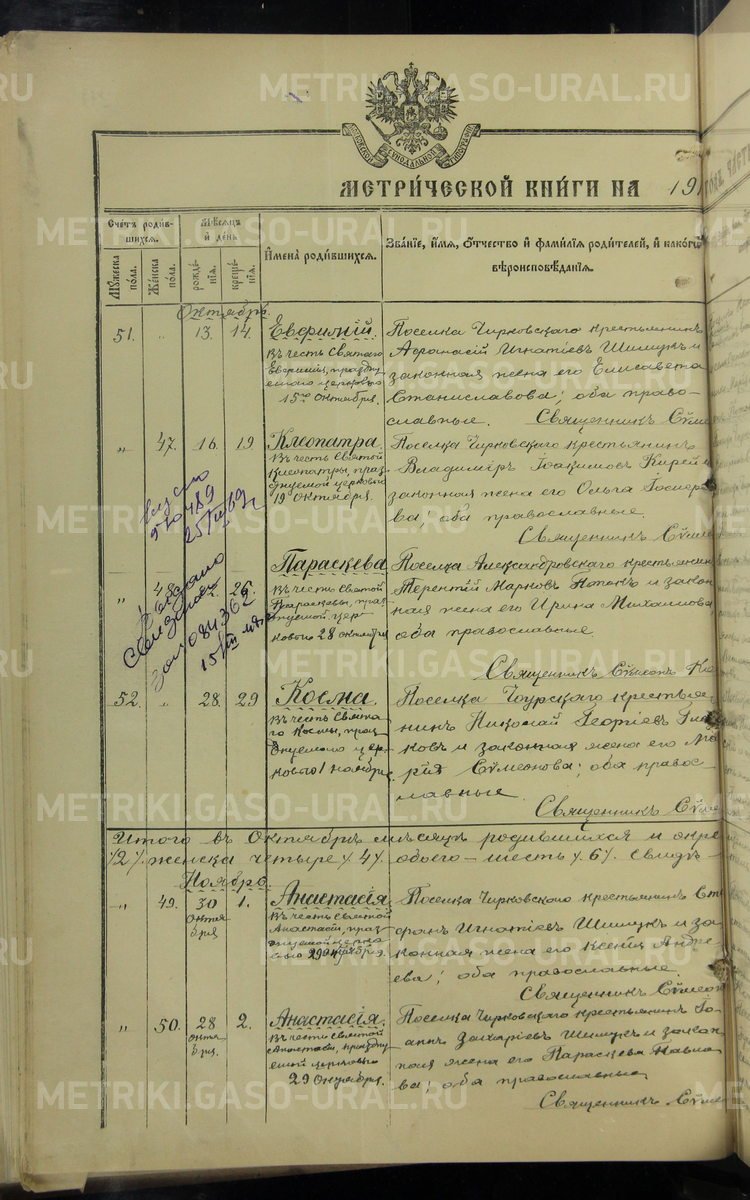 METRIKI.GASO-URAL.RU
МОСКОВСКОЙ СѴНОДАЛЬНОЙ ТИПОГРАФІИ
МЕТРИ́ЧЕСКОЙ КНИ́ГИ НА 191
Счетъ роди́вшихся.
Мѣсяцъ и день
Имена̀ роди́вшихся.
Зва́нїе, и́мя, о́тчество и фами́лїя роди́телей, и како́гѡ вѣроисповѣ́данїя.
Мꙋжеска пола.
Женска пола.
рожде́нїя.
креще́нїя.
Октябрь.
51. „ 13. 14. Евфимій.
Въ честь Святаго
Евфимія, праздну
емаго церковью
15го Октября.
Поселка Чирковскаго крестьянинъ
Афанасій Игнатіевъ Шимукъ и
законная жена его Елисавета
Станиславова; оба право-
славные. Священникъ Сѵме
„ 47. 16. 19 Клеопатра.
Въ честь Святой
Клеопатры, праз
днуемой церковью
19 Октября.
Поселка Чирковскаго крестьянинъ
Владиміръ Іоакимовъ Кирей и
законная жена его Ольга
ва; оба православные
Священникъ Сѵме
570489
25
„ 48. 26. Параскева
Въ честь Святой
Параскевы, праз
днуемой цер
ковью 28 октября
Поселка Александровскаго крестьянин
Терентій Марковъ и закон
ная жена его Ирина Михаилова
оба православные.
Священникъ Сѵмеонъ Ко
084362
15
52. „ 28. 29 Косма.
Въ честь Свята
го Космы, праз
днуемаго цер
ковью 1 ноября.
Поселка крестья-
нинъ Николай Георгіевъ
ковъ и законная жена его Ма
рія Сѵмеонова; оба право-
славные.
Священникъ Сѵме
Итого въ Октябрѣ мѣсяцѣ родившихся и окре
/2/. женска четыре /4/. обоего — шесть /6/. Свидѣ-
Ноябрь.
„ 49. 30 Октября 1. Анастасія.
Въ честь святой
Анастасіи, праз
днуемой церко
вью 29 Октября.
Поселка Чирковскаго крестьянинъ Сте
фанъ Игнатіевъ Шимукъ и за
конная жена его Ксенія Андре
ева; оба православные.
Священникъ Сѵмеон
„ 50. 28 Октября 2. Анастасія.
Въ честь святой
Анастасіи, праздну
емой церковью
29 Октября.
Поселка Чирковскаго крестьянинъ Іо
аннъ Захаріевъ Шимукъ и закон
ная жена его Параскева Павло
ва; оба православные
Священникъ Сѵме